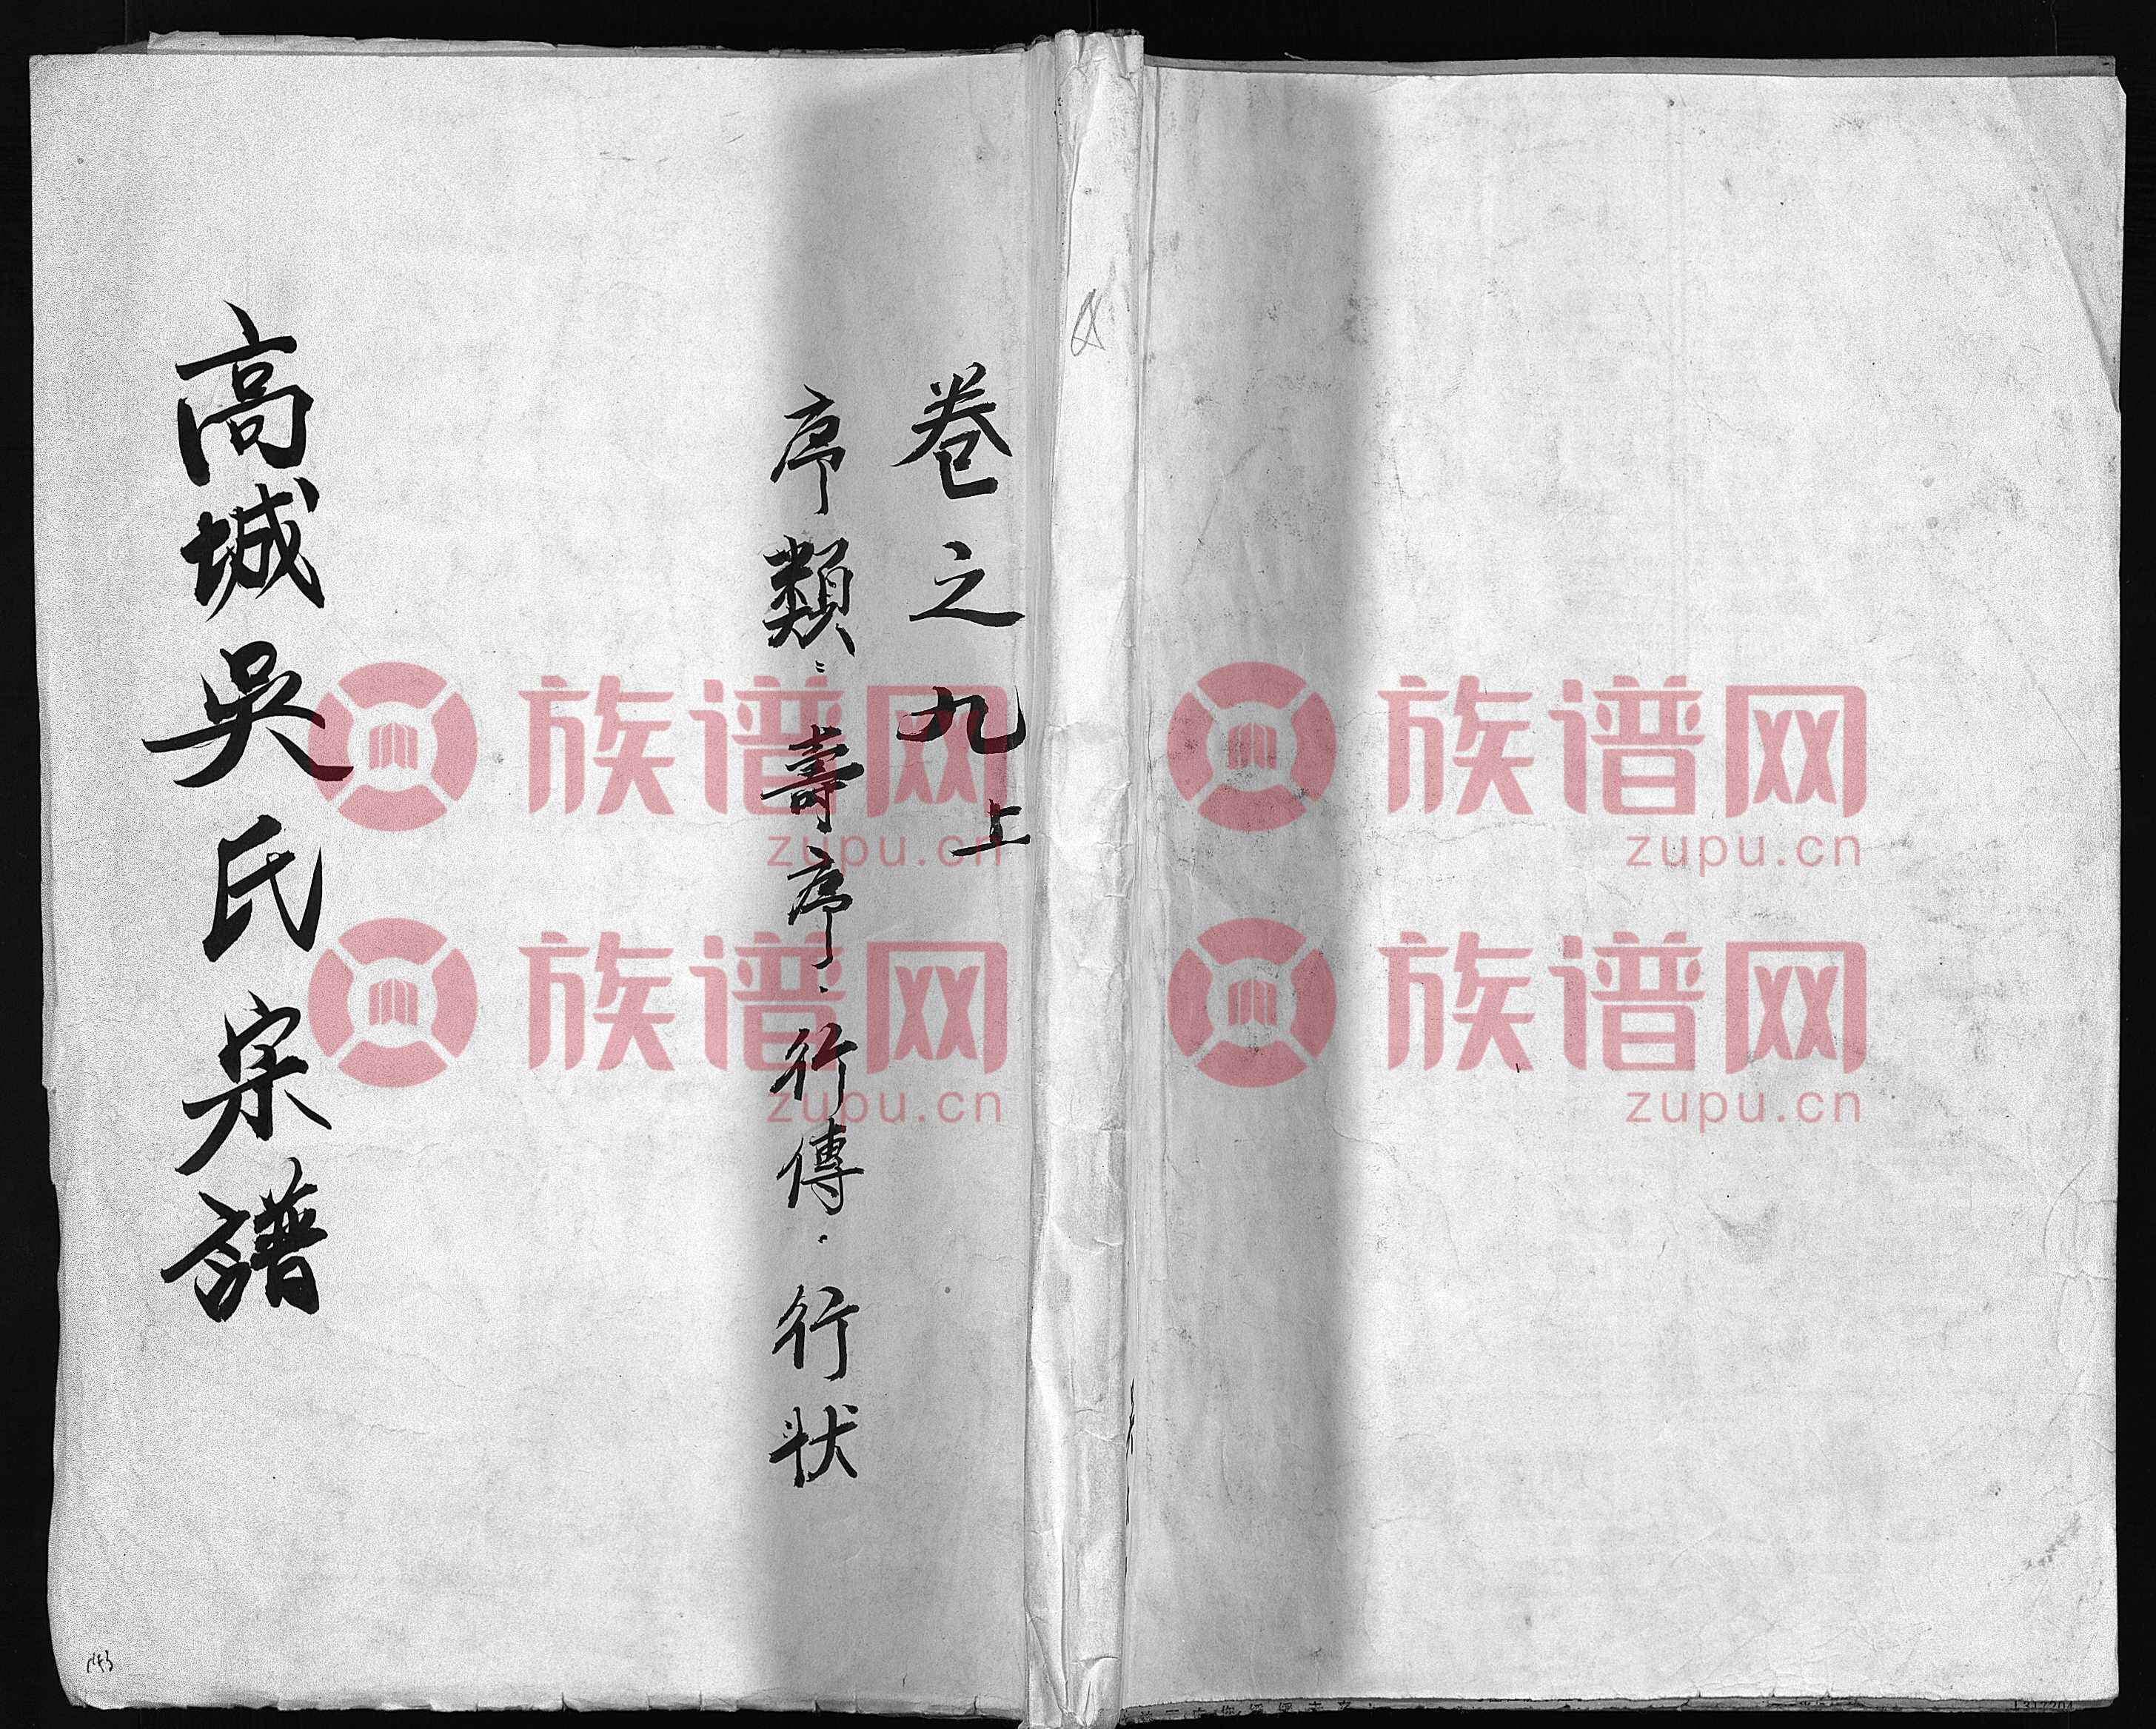 卷之九上
序類：壽序．行傳．行状
高城吳氏宗譜
族谱网
zupu.cn
族谱网
zupu.cn
族谱网
zupu.cn
族谱网
zupu.cn